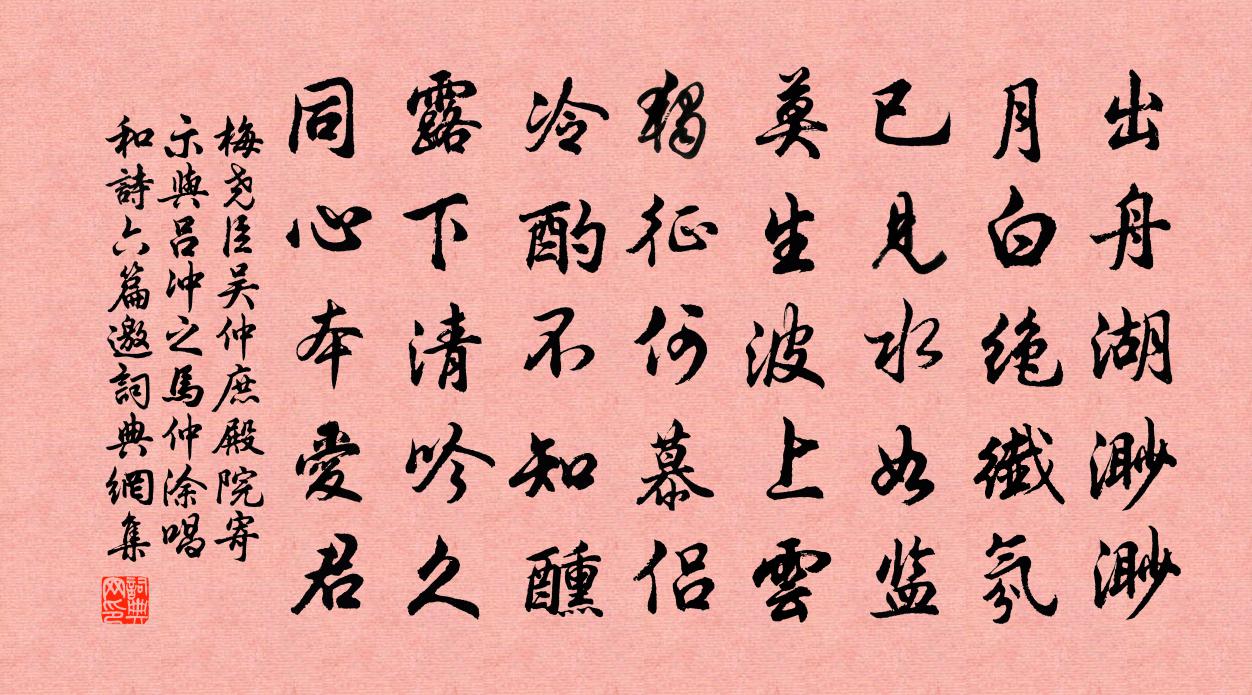 出舟湖渺渺
月白絕纖氛
已見水如監
莫生波上雲
獨征何慕侶
冷酌不知醺
露下清吟久
同心本愛君
梅堯臣吳仲庶殿院寄
示與呂沖之馬仲涂唱
和詩六篇邀詞典網集
詞典網印